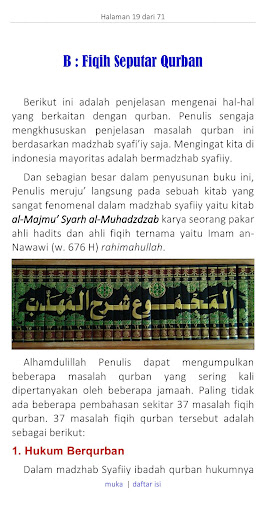 Halaman 19 dari 71
B : Fiqih Seputar Qurban
Berikut ini adalah penjelasan mengenai hal-hal
yang berkaitan dengan qurban. Penulis sengaja
mengkhususkan penjelasan masalah qurban ini
berdasarkan madzhab syafi'iy saja. Mengingat kita di
indonesia mayoritas adalah bermadzhab syafiiy.
Dan sebagian besar dalam penyusunan buku ini,
Penulis meruju' langsung pada sebuah kitab yang
sangat fenomenal dalam madzhab syafiiy yaitu kitab
al-Majmu' Syarh al-Muhadzdzab karya seorang pakar
ahli hadits dan ahli fiqih ternama yaitu Imam an-
Nawawi (w. 676 H) rahimahullah.
المجموع شرح المهذب
Alhamdulillah Penulis dapat mengumpulkan
beberapa masalah qurban yang sering kali
dipertanyakan oleh beberapa jamaah. Paling tidak
ada beberapa pembahasan sekitar 37 masalah fiqih
qurban. 37 masalah fiqih qurban tersebut adalah
sebagai berikut:
1. Hukum Berqurban
Dalam madzhab Syafiiy ibadah qurban hukumnya
muka | daftar isi